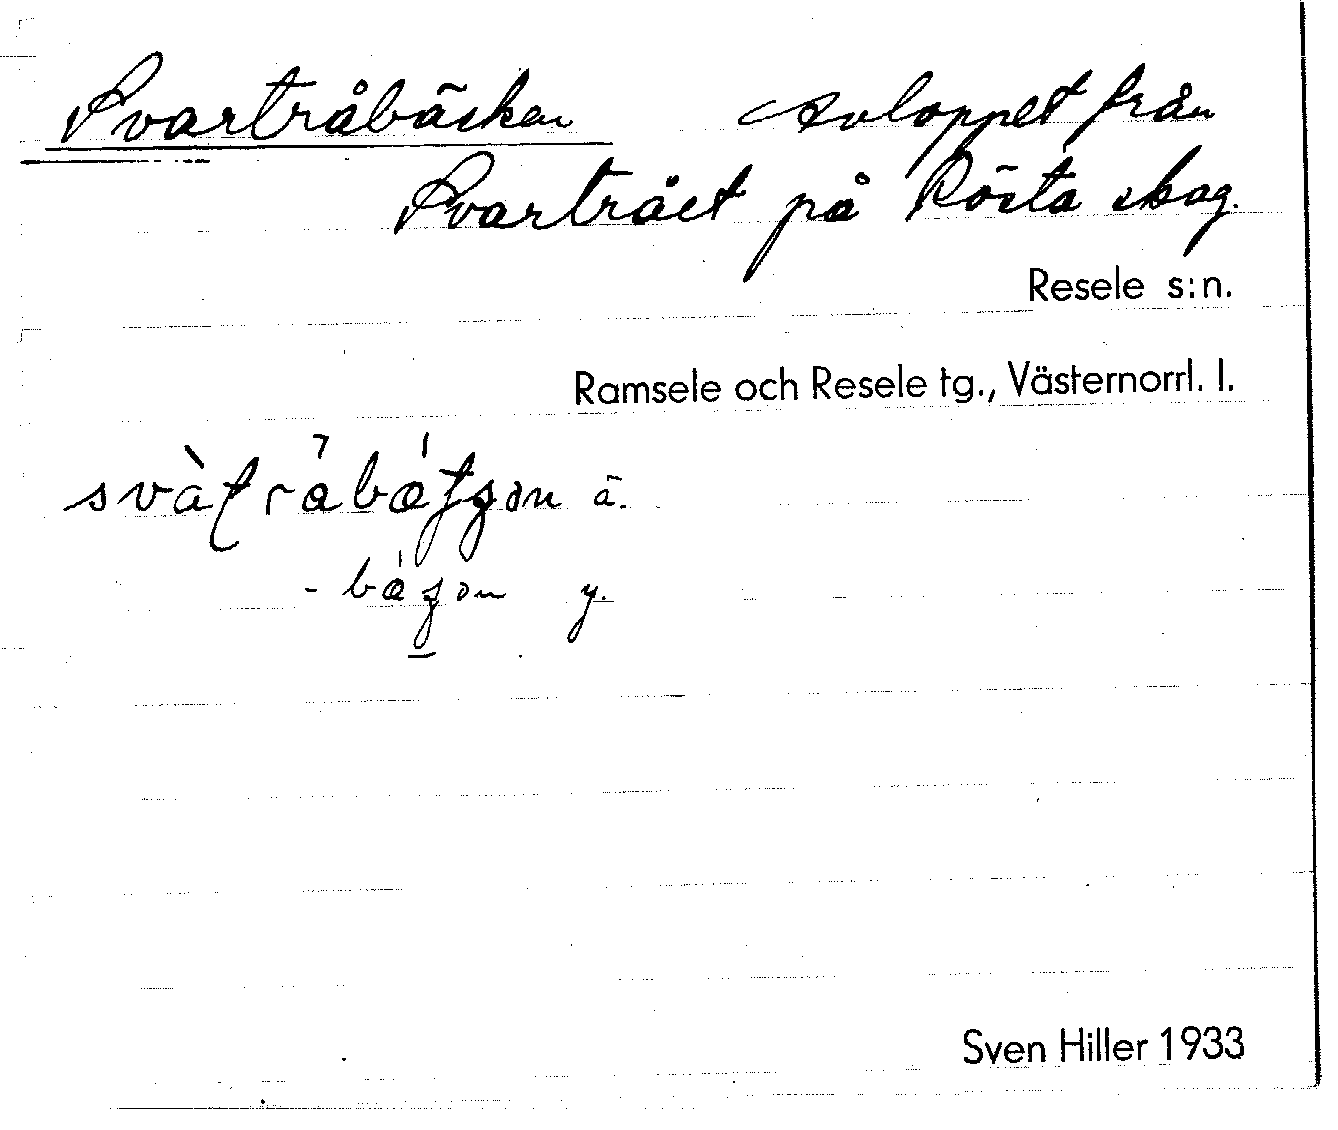 Svartråbäcken Avloppet från
Svartrået på Rösta skog.
Resele s:n.
Ramsele och Resele tg., Västernorrl. l.
ä.
y.
Sven Hiller 1933